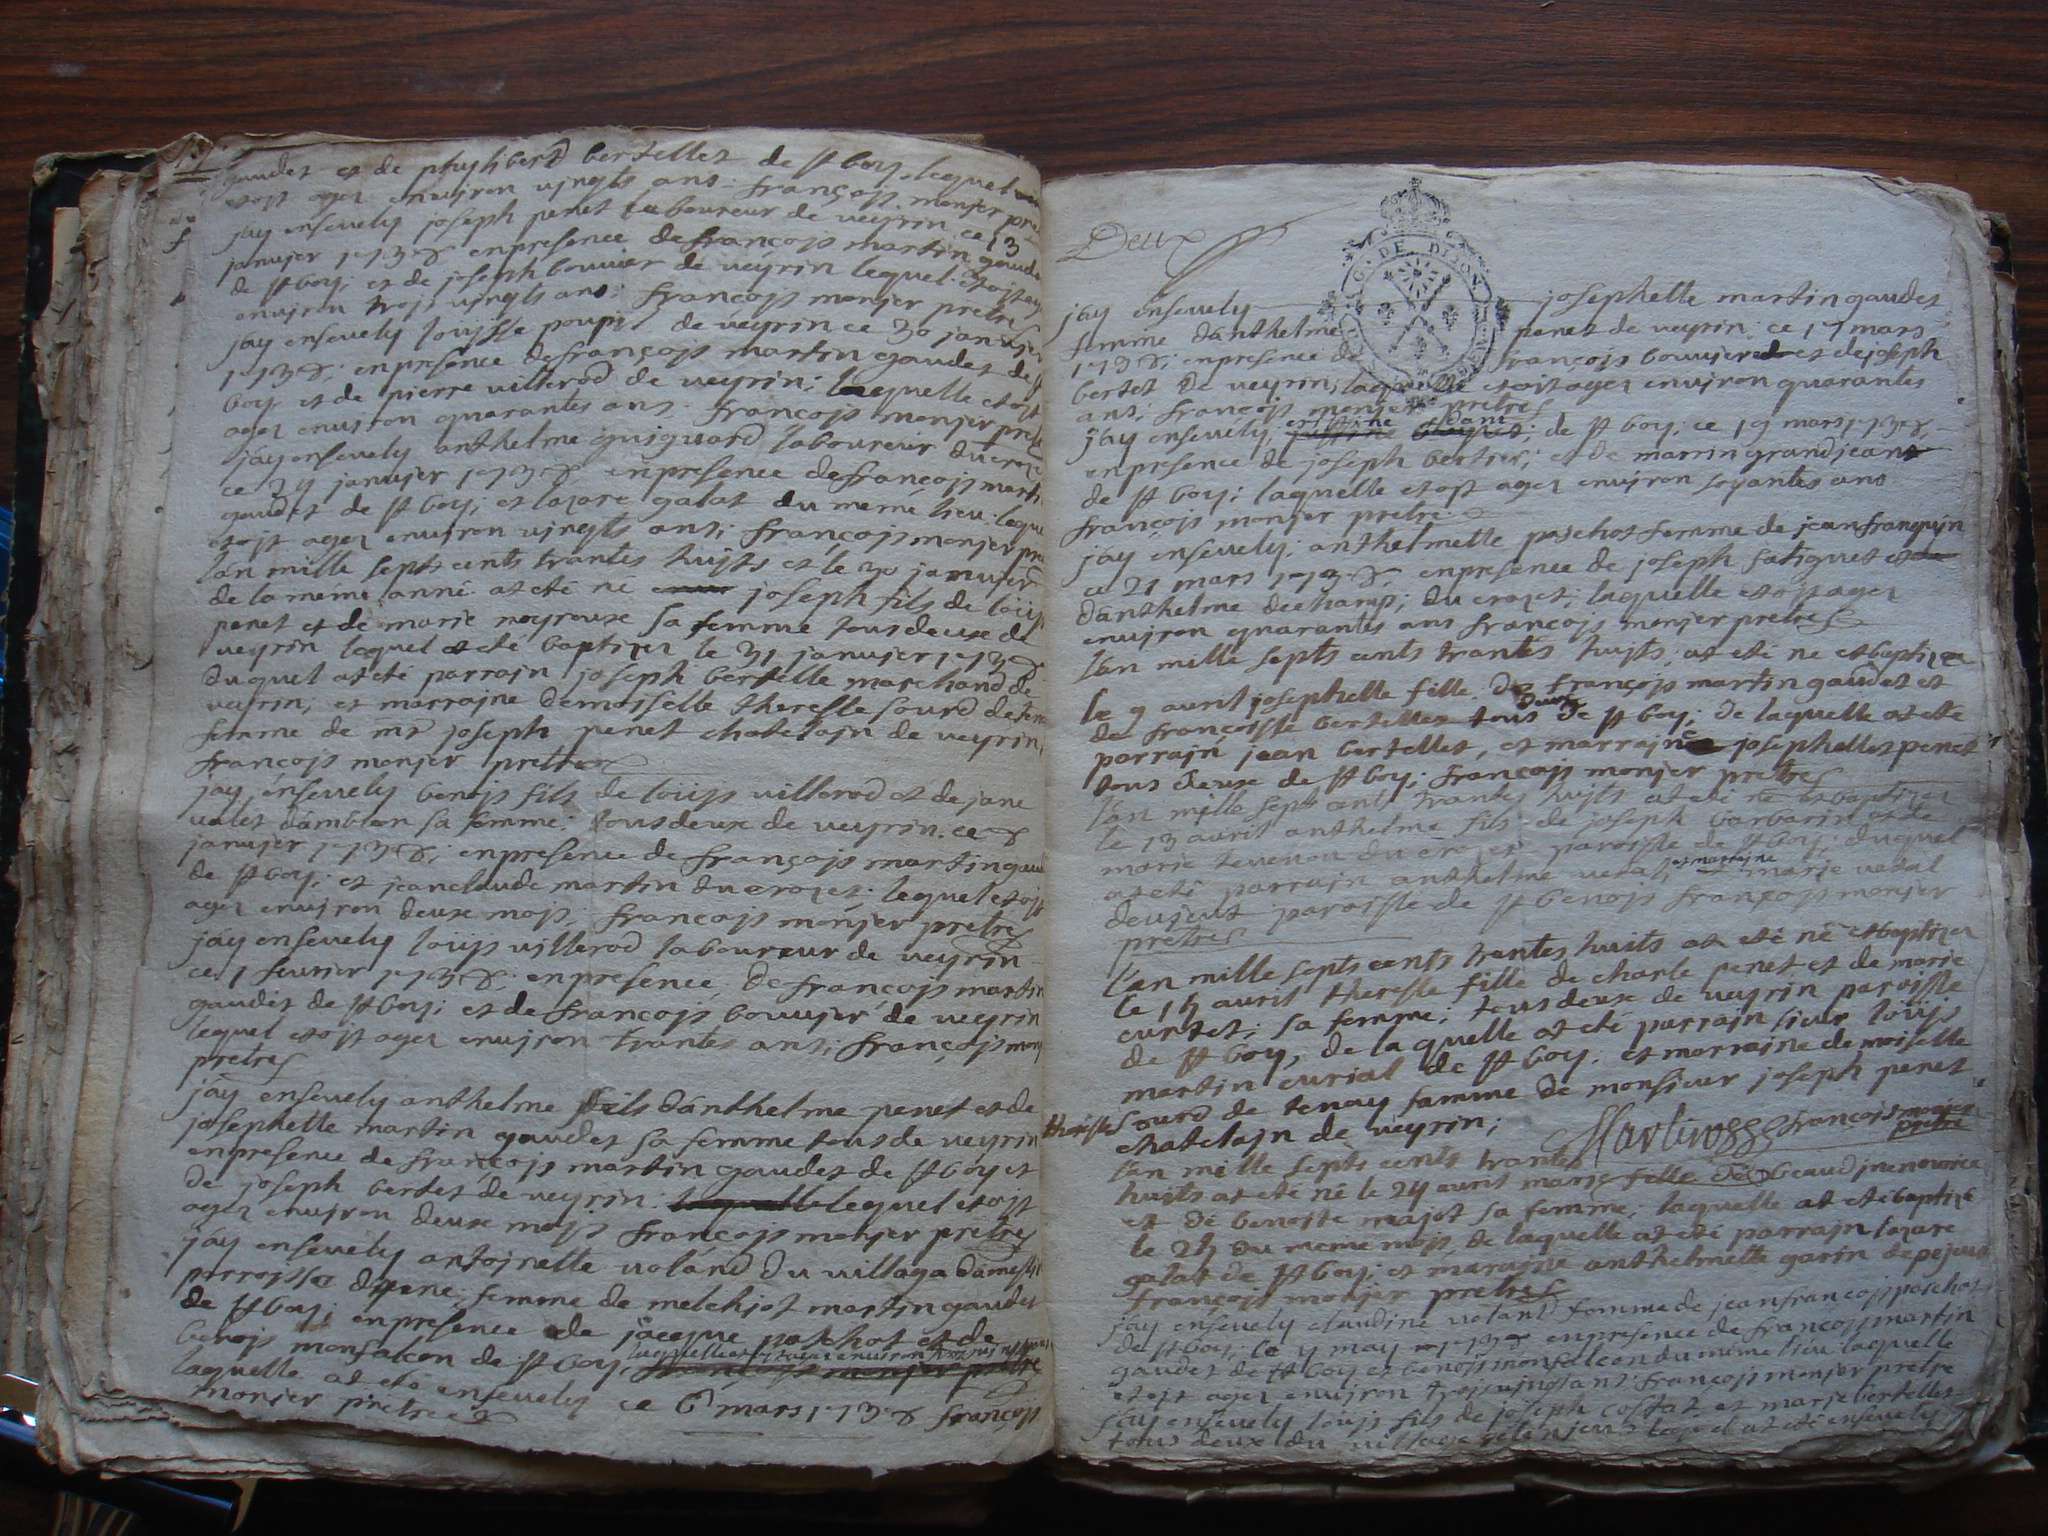 gaudet et de phylibert bertellet de st boy, lequel
etoit agez environ vingts ans: françois monjer pre
jay ensevely joseph penet laboureur de veyrin ce 13
janvjer 1738 enpresence de françois martin gaude
de st boy; et de joseph bouvier de veyrin lequel etoit agez
environ trois vingts ans: françois monjer pretre
jay ensevely louisse poupi de veyrin ce 30 janvjer
1738; enpresence de françois martin gaudet de st
boy et de pierre villerod de veyrin; laquelle etoit
agez environ quarantes ans: françois monjer pretre
jay ensevely anthelme guiguard laboureur du crozet
ce janvjer 1738 enpresence de françois martin
gaudet de st boy; et lazare galat du même lieu: lequel
etoit agez environ vingts ans; françois monjer pre
lán mille septs cents trantes huits et le 30 janvjer
de la même anné at eté né joseph fils de loüis
penet et de marie neyrouse sa femme tous deuxe de
veyrin lequel at eté baptizez le 31 janvjer 1738
duquel at eté parrain joseph bertelle marchand de
veyrin, et marraine demoiselle theresse sourd de tenay
femme de mr joseph penet chatelajn de veyrin,
françois monjer pretre
jay énsevely benois fils de loüis villerod et de jane
valet dámblon sa femme: tous deuxe de veyrin. ce 8
janvjer 1738; enpresence de françois martin gaud
de st boy; et jean claude martin du crozet; lequel etoit
agez environ deuxe mois: françois monjer pretre
jáy ensevely loüis villerod laboureur de veyrin
ce 1 fevrier 1738; enpresence, de françois martin
gaudet de st boy; et de françois bouvjer de veyrin
lequel etoit agez environ trantes ans; françois monj
pretre
jáy ensevely anthelme fils dánthelme penet et de
josephette martin gaudet sa femme tous de veyrin
enpresence de françois martin gaudet de st boy et
de joseph bertet de veyrin: laquelle lequel etoit
agez environ deuxe mois françois monjer pretre
jáy ensevely antoinette voland du village dámesti
parroisse dpene, femme de melchjot martin gaudet
de st boy; enpresence de jacque paschot et de
benois monfalcon de st boy, laquelle etoit agez environ
laquelle at eté ensevely ce 6 mars 1738 françois
monjer pretre
Deux
G. DE DIJON
jay ensevely josephette martin gaudet
femme dánthelme penet de veyrin; ce 17 mars
1738; enpresence de françois bouvjere et de joseph
bertet de veyrin; laquelle etoit agez environ quarantes
ans; françois monjer pretre
jay ensevely, de st boy; ce 19 mars 1738,
enpresence de joseph bertet; et de martin grandjean
de st boy; laquelle etoit agez environ soyantes ans
françois monjer pretre:
jay ensevely; anthelmette paschot femme de jean franquin
ce 21 mars 1738; enpresence de joseph fatiguet et
dánthelme dechamp; du crozet; laquelle etoit agez
environ quarantes ans françois monjer pretre
lán mille septs cents trantes huits; at eté né et baptizez
le 9 avril josephette fille de françois martin gaudet et
de françoisse bertellet tous deuxe de st boy; de laquelle at eté
parrain jean bertellet, et marraine josephette penet
tous deuxe de st boy; françois monjer pretre
lán mille septs cents trantes huits at eté né et baptizez
le 13 avril anthelme fils de joseph barbarin et de
marie tevenon du crozet paroisse de st boy; duquel
at eté parrain anthelme vetal; et marraine marie vatal
deujeut paroisse de st benois françois monjer
pretre
lán mille septs cents trantes huits at eté né et baptizez
le 15 avril theresse fille de charle penet et de marie
curtet; sa femme; tous deuxe de veyrin paroisse
de st boy, de laquelle at eté parrain sieur loüis
martin curial de st boy. et marraine demoiselle
theresse sourd de tenay famme de monsieur joseph penet
chatelajn de veyrin; françois monjer
pretre
lán mille septs cents trantes
huits at eté né le 24 avril marie fille de
et de benoite majot sa femme; laquelle at eté baptizé
le 25 du meme mois de laquelle at eté parrain lazare
galat de st boy; et maraine anthelmette garin de pejeu
françois monjer pretre
jay ensevely claudine volant femme de jean françois paschot
de st boy; ce 4 may 1738 enpresence de françois martin
gaudet de st boy et benois monfalcon du meme lieu laquelle
etoit agez environ trois vingts ans: françois monjer pretre
jay ensevely louis fils de joseph costaz et marie bertellet
tous deux du village lequel at eté ensevely